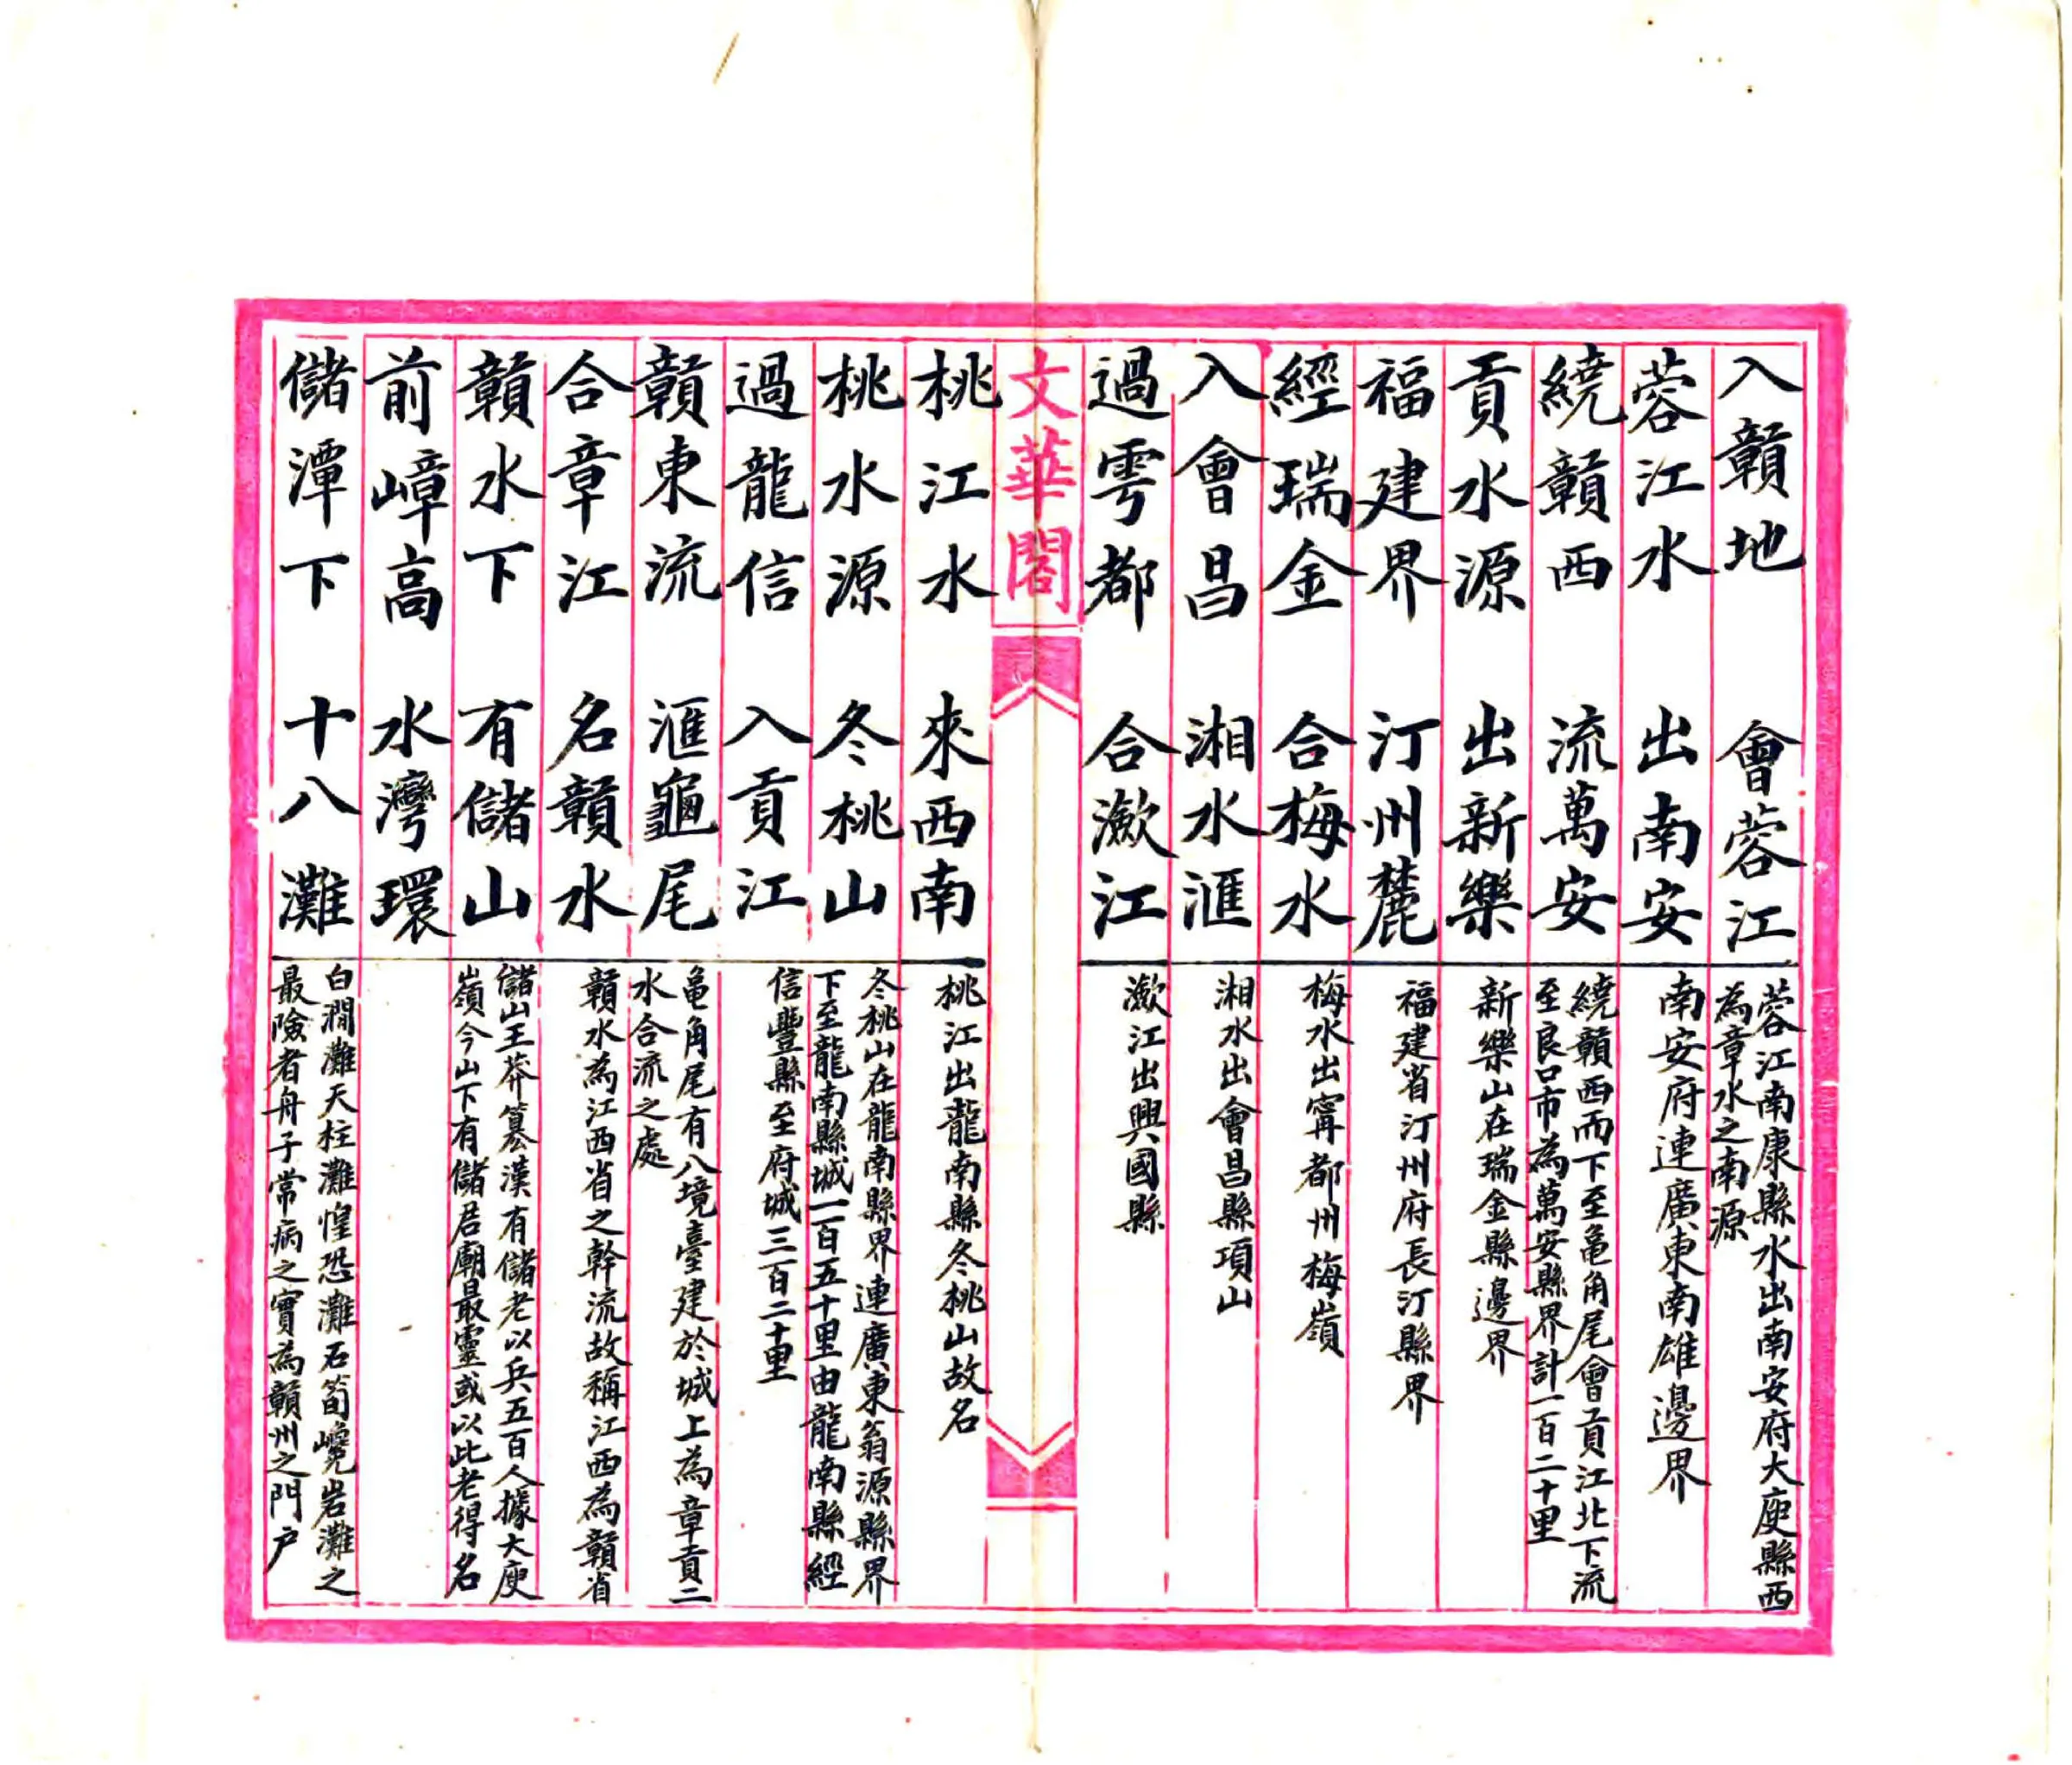 入贛地　會蓉江
蓉江南康縣水出南安府大庾縣西
為章水之南源
蓉江水　出南安
南安府連廣東南雄邊界
繞贛西　流萬安
繞贛西而下至龜角尾會貢江北下流
至良口市為萬安縣界計一百二十里
貢水源　出新樂
新樂山在瑞金縣邊界
福建界　汀州麓
福建省汀州府長汀縣界
經瑞金　合梅水
梅水出甯都州梅嶺
入會昌　湘水滙
湘水出會昌縣項山
過雩都　合漖江
漖江出興國縣
文華閣
桃江水　來西南
桃江出龍南縣冬桃山故名
桃水源　冬桃山
冬桃山在龍南縣界連廣東翁源縣界
下至龍南縣城一百五十里由龍南縣經
過龍信　入貢江
信豐縣至府城三百二十里
贛東流　滙龜尾
龜角尾有八境臺建於城上為章貢二
水合流之處
合章江　名贛水
贛水為江西省之幹流故稱江西為贛省
贛水下　有儲山
儲山王莽篡漢有儲老以兵五百人據大庾
嶺今山下有儲君廟最靈或以此老得名
前嶂高　水灣環
儲潭下　十八灘
白澗灘天柱灘惶恐灘石筍巉岩灘之
最險者舟子常病之實為贛州之門户